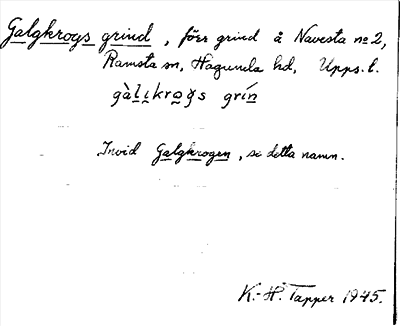 Galgkrogs grind, förr grind å Navesta nº 2,
Ramsta sn, Hagunda hd, Upps. l.
gàlikrogs grín
Invid Galgkrogen, se detta namn.
K.-H. Tapper 1945.